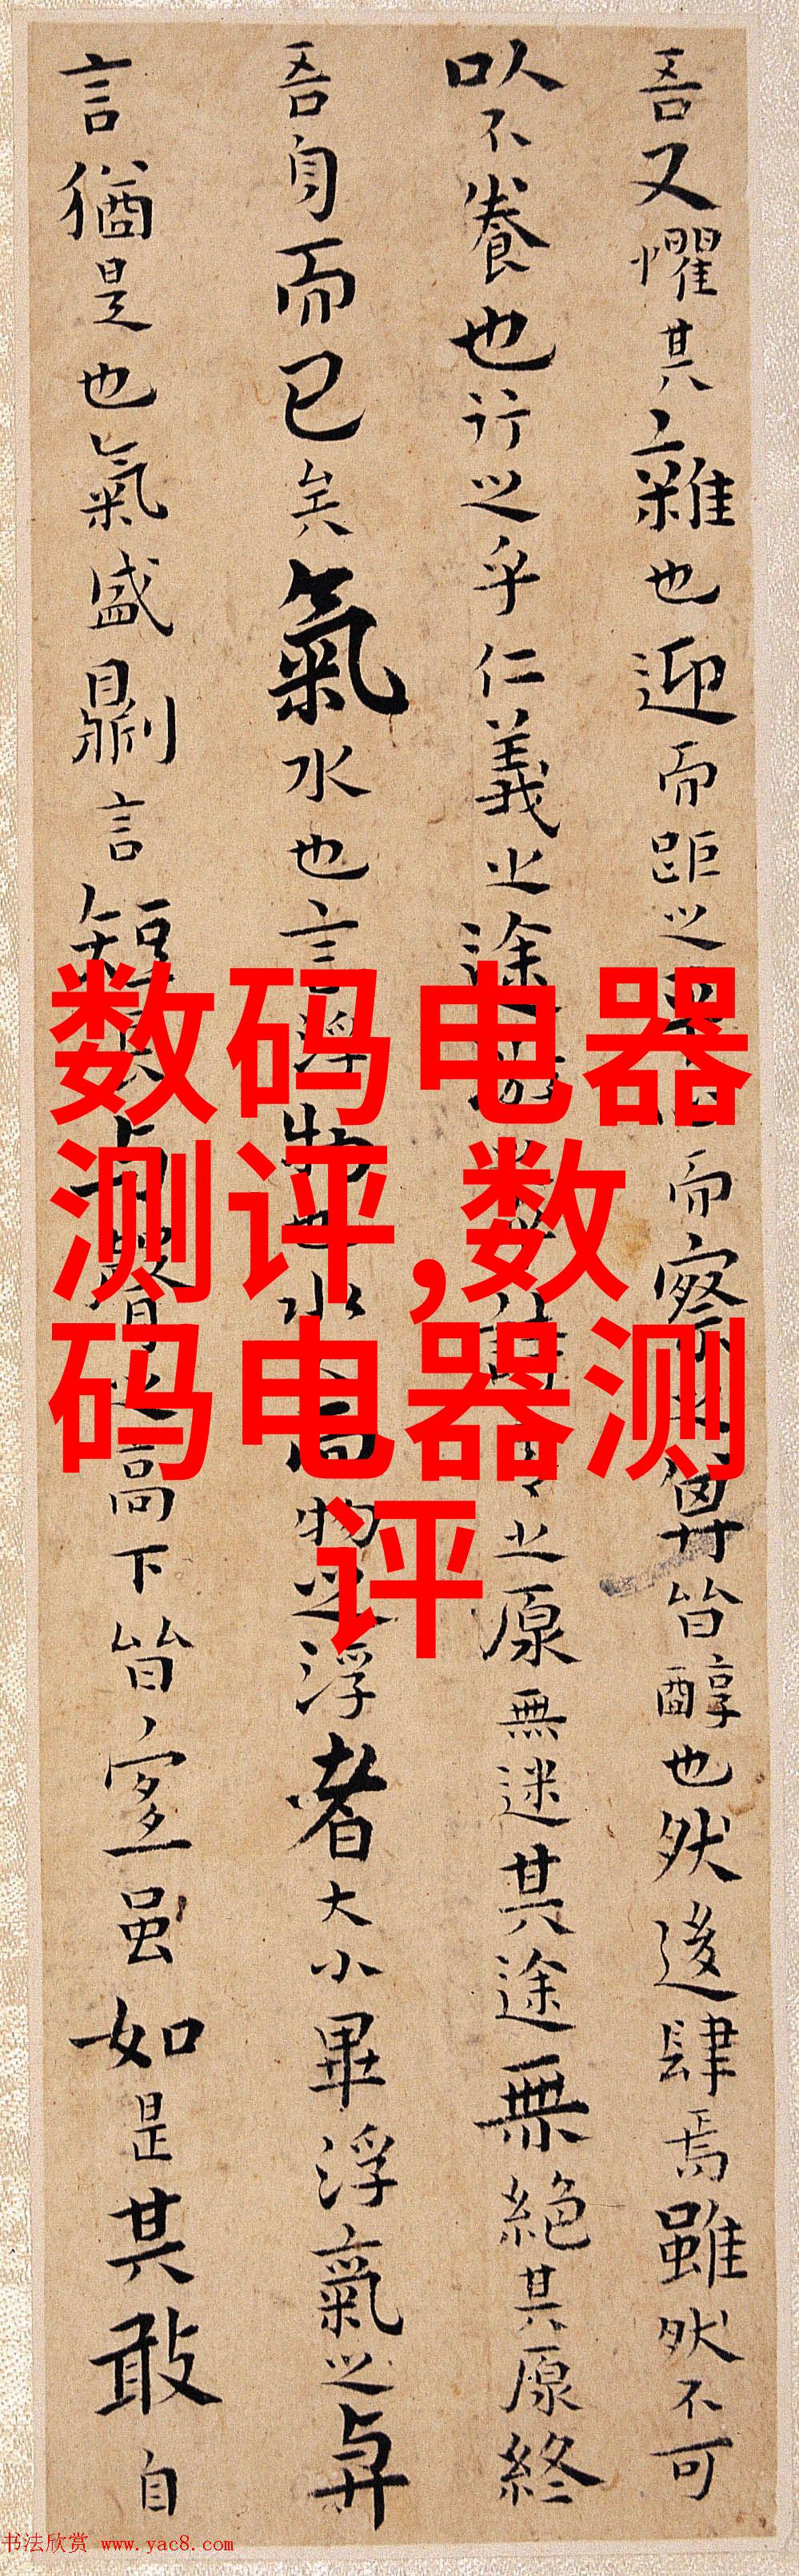 吾又懼其雜也迎而距之而察其皆醇也然後肆焉雖然不可
以不養也行之乎仁義之途之原無迷其途無絕其原終
吾身而已矣氣水也言浮物也水而物之浮者大小畢浮氣之與
言猶是也氣盛則言短與聲之高下皆宜雖如是其敢自
数码电器
测评,数
码电器测
评
书法欣赏 www.yac8.com